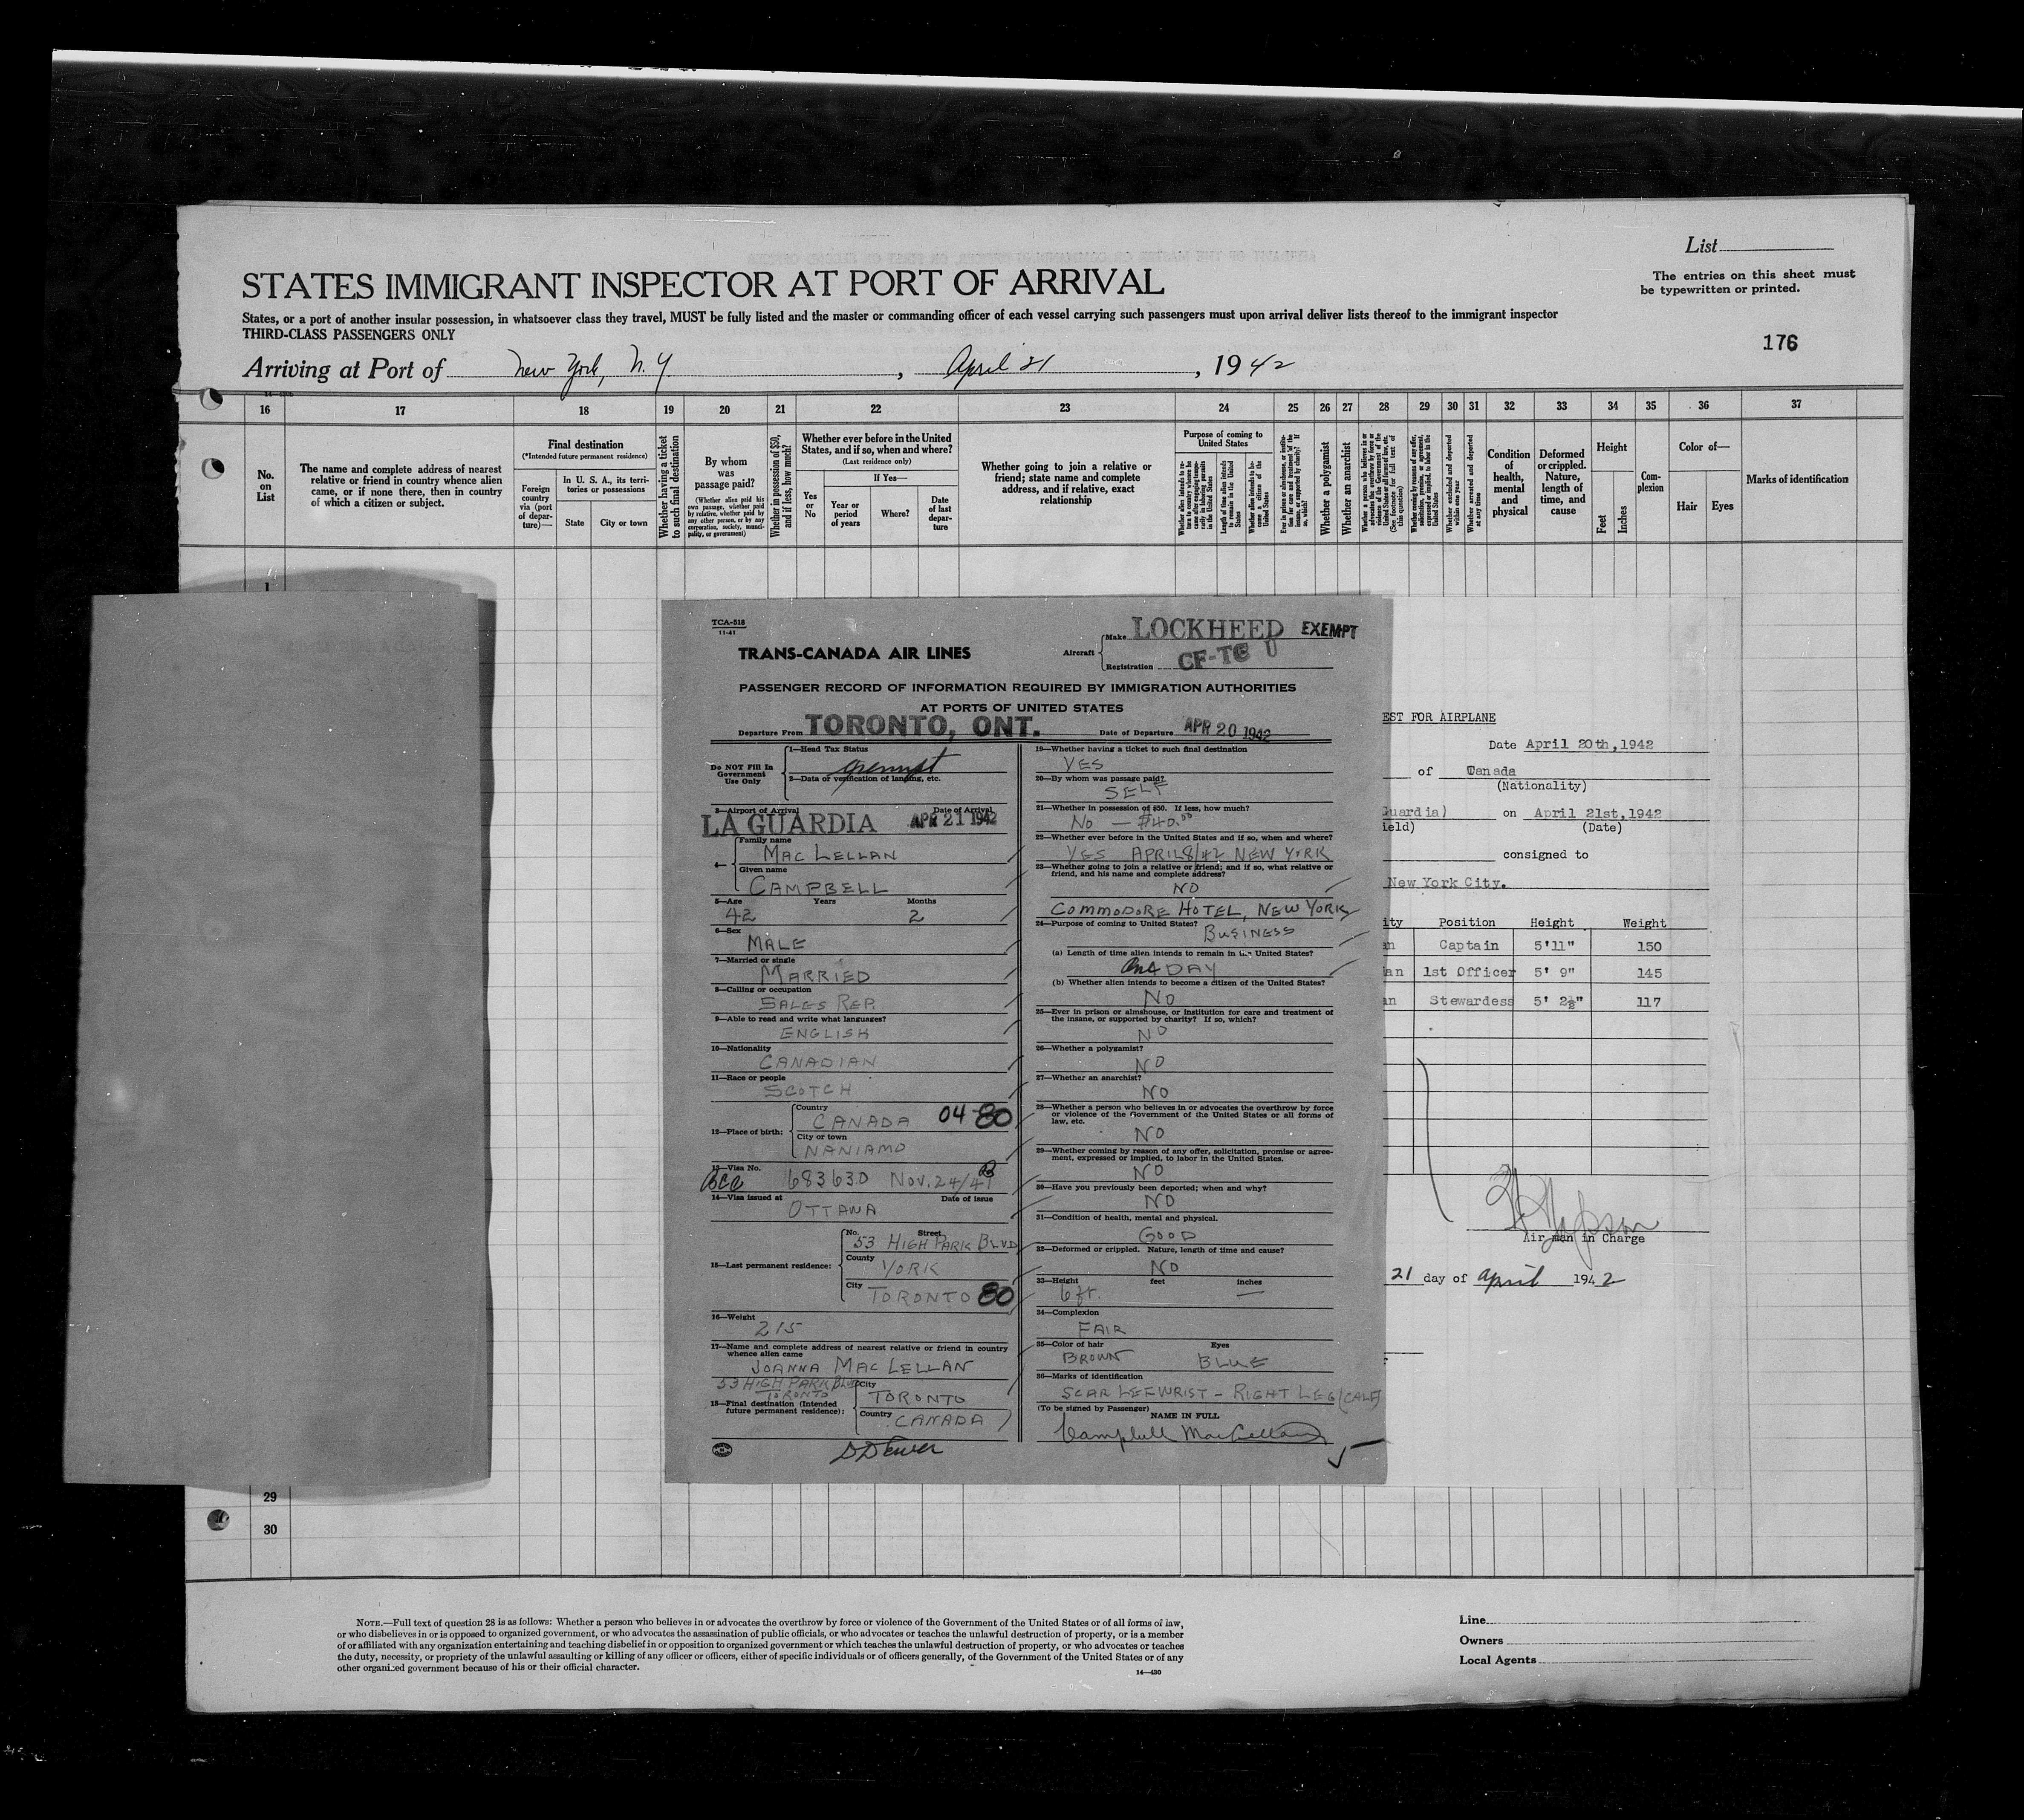 List
STATES IMMIGRANT INSPECTOR AT PORT OF ARRIVAL
The entries on this sheet must
be typewritten or printed.
States, or a port of another insular possession, in whatsoever class they travel, MUST be fully listed and the master or commanding officer of each vessel carrying such passengers must upon arrival deliver lists thereof to the immigrant inspector
THIRD-CLASS PASSENGERS ONLY
176
Arriving at Port of New York, N.Y. , April 21 , 1942
16 17 18 19 20 21 22 23 24 25 26 27 28 29 30 31 32 33 34 35 36 37
No. on List
The name and complete address of nearest relative or friend in country whence alien came, or if none there, then in country of which a citizen or subject.
Final destination
(*Intended future permanent residence)
Foreign country via (port of departure)—
In U. S. A., its territories or possessions
State
City or town
Whether having a ticket to such final destination
By whom was passage paid?
(Whether alien paid his own passage, whether paid by relative, whether paid by any other person, or by any corporation, society, municipality, or government)
Whether in possession of $50, and if less, how much?
Whether ever before in the United States, and if so, when and where?
(Last residence only)
Yes or No
If Yes—
Year or period of years
Where?
Date of last departure
Whether going to join a relative or friend; state name and complete address, and if relative, exact relationship
Purpose of coming to United States
Length of time alien intends to remain in the United States
Whether alien intends to become a citizen of the United States
Whether a polygamist
Whether an anarchist
Whether excluded and deported within one year
Whether arrested and deported at any time
Condition of health, mental and physical
Deformed or crippled. Nature, length of time, and cause
Height
Feet
Inches
Complexion
Color of—
Hair
Eyes
Marks of identification
1
TCA-518
11-41
TRANS-CANADA AIR LINES
Aircraft
Make LOCKHEED EXEMPT
Registration CF-TC
PASSENGER RECORD OF INFORMATION REQUIRED BY IMMIGRATION AUTHORITIES
AT PORTS OF UNITED STATES
Departure From TORONTO, ONT. Date of Departure APR 20 1942
Do NOT Fill In
Government
Use Only
1—Head Tax Status
exempt
2—Data or verification of landing, etc.
3—Airport of Arrival Date of Arrival
LA GUARDIA APR 21 1942
4—
Family name
MAC LELLAN
Given name
CAMPBELL
5—Age Years Months
42 2
6—Sex
MALE
7—Married or single
MARRIED
8—Calling or occupation
SALES REP.
9—Able to read and write what languages?
ENGLISH
10—Nationality
CANADIAN
11—Race or people
SCOTCH
12—Place of birth:
Country
CANADA 04-80
City or town
NANIAMO
13—Visa No.
683630 NOV. 24/41
14—Visa issued at Date of issue
OTTAWA
15—Last permanent residence:
No. Street
53 HIGH PARK BLVD
County
YORK
City
TORONTO 80
16—Weight
215
17—Name and complete address of nearest relative or friend in country
whence alien came
JOANNA MAC LELLAN
53 HIGH PARK BLVD
TORONTO
18—Final destination (Intended
future permanent residence):
City
TORONTO
Country
CANADA
19—Whether having a ticket to such final destination
YES
20—By whom was passage paid?
SELF
21—Whether in possession of $50. If less, how much?
NO — $40.00
22—Whether ever before in the United States and if so, when and where?
YES APRIL 8/42 NEW YORK
23—Whether going to join a relative or friend; and if so, what relative or
friend, and his name and complete address?
NO
COMMODORE HOTEL, NEW YORK
24—Purpose of coming to United States?
BUSINESS
(a) Length of time alien intends to remain in the United States?
One DAY
(b) Whether alien intends to become a citizen of the United States?
NO
25—Ever in prison or almshouse, or institution for care and treatment of
the insane, or supported by charity? If so, which?
NO
26—Whether a polygamist?
NO
27—Whether an anarchist?
NO
28—Whether a person who believes in or advocates the overthrow by force
or violence of the Government of the United States or all forms of
law, etc.
NO
29—Whether coming by reason of any offer, solicitation, promise or agree-
ment, expressed or implied, to labor in the United States.
NO
30—Have you previously been deported; when and why?
NO
31—Condition of health, mental and physical.
GOOD
32—Deformed or crippled. Nature, length of time and cause?
NO
33—Height feet inches
6 ft. —
34—Complexion
FAIR
35—Color of hair Eyes
BROWN BLUE
36—Marks of identification
SCAR LEFWRIST – RIGHT LEG (CALF)
(To be signed by Passenger)
NAME IN FULL
Campbell MacLellan
EST FOR AIRPLANE
Date April 20th, 1942
of Canada
(Nationality)
Guardia) on April 21st, 1942
ield) (Date)
consigned to
New York City.
ity Position Height Weight
n Captain 5'11" 150
an 1st Officer 5' 9" 145
n Stewardess 5' 2½" 117
Air man in Charge
21 day of April 1942
29
30
NOTE.—Full text of question 28 is as follows: Whether a person who believes in or advocates the overthrow by force or violence of the Government of the United States or of all forms of law,
or who disbelieves in or is opposed to organized government, or who advocates the assassination of public officials, or who advocates or teaches the unlawful destruction of property, or is a member
of or affiliated with any organization entertaining and teaching disbelief in or opposition to organized government or which teaches the unlawful destruction of property, or who advocates or teaches
the duty, necessity, or propriety of the unlawful assaulting or killing of any officer or officers, either of specific individuals or of officers generally, of the Government of the United States or of any
other organized government because of his or their official character.
14—430
Line
Owners
Local Agents